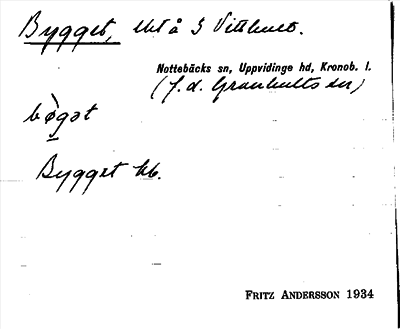 Bygget, lht å 3 Vitthult.
Nottebäcks sn, Uppvidinge hd, Kronob. l.
(f.d. Granhults sn)
bøgət
Bygget kb.
FRITZ ANDERSSON 1934